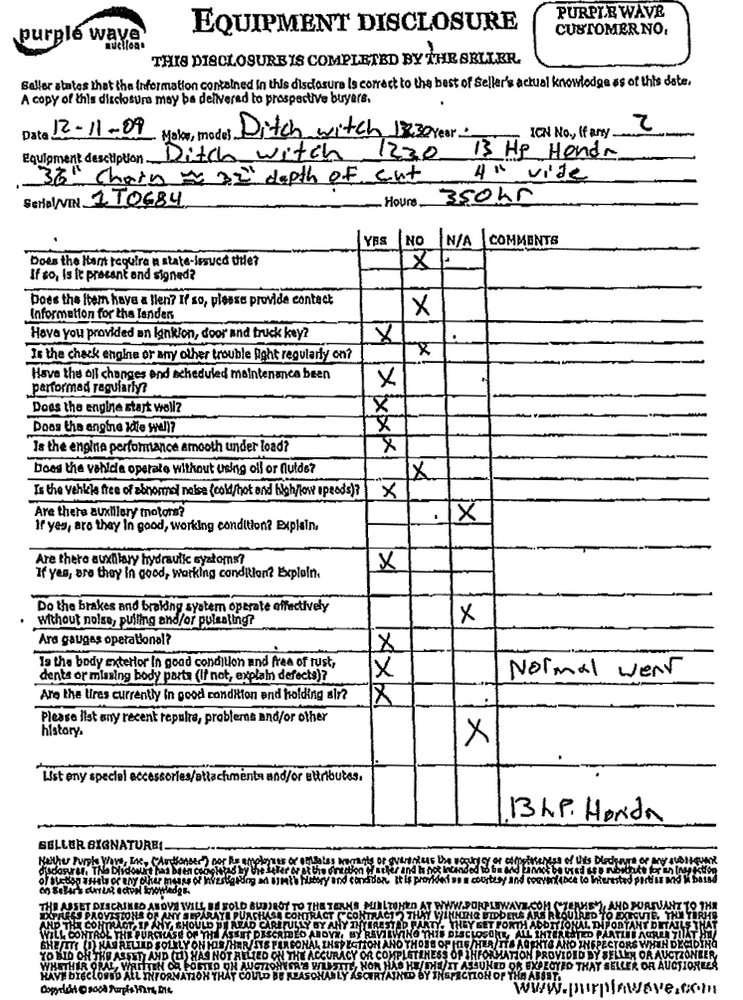 purple wave
auctions
EQUIPMENT DISCLOSURE
PURPLE WAVE
CUSTOMER NO.
THIS DISCLOSURE IS COMPLETED BY THE SELLER.
Seller states that the information contained in this disclosure is correct to the best of Seller's actual knowledge as of this date.
A copy of this disclosure may be delivered to prospective buyers.
Date 12-11-09 Make, model Ditch witch 1230 Year ICN No., if any 2
Equipment description Ditch witch 1230 13 Hp Honda
36" chain ≈ 32" depth of cut 4" wide
Serial/VIN 1T0684 Hours 350 hr
YES NO N/A COMMENTS
Does the item require a state-issued title? X
If so, is it present and signed?
Does the item have a lien? If so, please provide contact
information for the lender. X
Have you provided an ignition, door and truck key? X
Is the check engine or any other trouble light regularly on? X
Have the oil changes and scheduled maintenance been
performed regularly? X
Does the engine start well? X
Does the engine idle well? X
Is the engine performance smooth under load? X
Does the vehicle operate without using oil or fluids? X
Is the vehicle free of abnormal noise (cold/hot and high/low speeds)? X
Are there auxiliary motors? X
If yes, are they in good, working condition? Explain.
Are there auxiliary hydraulic systems? X
If yes, are they in good, working condition? Explain.
Do the brakes and braking system operate effectively
without noise, pulling and/or pulsating? X
Are gauges operational? X
Is the body exterior in good condition and free of rust,
dents or missing body parts (if not, explain defects)? X Normal wear
Are the tires currently in good condition and holding air? X
Please list any recent repairs, problems and/or other
history. X
List any special accessories/attachments and/or attributes.
13 h.P. Honda
SELLER SIGNATURE:
Neither Purple Wave, Inc. ("Auctioneer") nor its employees or affiliates warrants or guarantees the accuracy or completeness of this Disclosure or any subsequent
disclosures. This Disclosure has been completed by the seller or at the direction of seller and is not intended to be and cannot be used as a substitute for an inspection
of auction assets or any other means of investigating an asset's history and condition. It is provided as a courtesy and convenience to interested parties and is based
on Seller's current actual knowledge.
THE ASSET DESCRIBED ABOVE WILL BE SOLD SUBJECT TO THE TERMS PUBLISHED AT WWW.PURPLEWAVE.COM ("TERMS"), AND PURSUANT TO THE
EXPRESS PROVISIONS OF ANY SEPARATE PURCHASE CONTRACT ("CONTRACT") THAT WINNING BIDDERS ARE REQUIRED TO EXECUTE. THE TERMS
AND THE CONTRACT, IF ANY, SHOULD BE READ CAREFULLY BY ANY INTERESTED PARTY. THEY SET FORTH ADDITIONAL IMPORTANT DETAILS THAT
WILL CONTROL THE PURCHASE OF THE ASSET DESCRIBED ABOVE. BY REVIEWING THIS DISCLOSURE, ALL INTERESTED PARTIES AGREE THAT HE/
SHE/IT: (I) HAS RELIED SOLELY ON HIS/HER/ITS PERSONAL INSPECTION AND THOSE OF HIS/HER/ITS AGENTS AND INSPECTORS WHEN DECIDING
TO BID ON THE ASSET; AND (II) HAS NOT RELIED ON THE ACCURACY OR COMPLETENESS OF INFORMATION PROVIDED BY SELLER OR AUCTIONEER,
WHETHER ORAL, WRITTEN OR POSTED ON AUCTIONEER'S WEBSITE, NOR HAS HE/SHE/IT ASSUMED OR EXPECTED THAT SELLER OR AUCTIONEER
HAVE DISCLOSED ALL INFORMATION THAT COULD BE REASONABLY ASCERTAINED BY INSPECTION OF THE ASSET.
Copyright © 2008 Purple Wave, Inc. www.purplewave.com